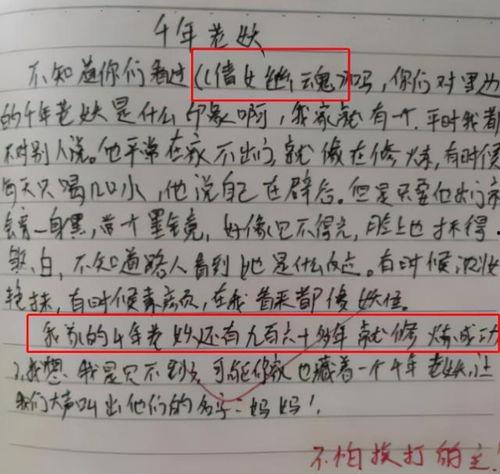 千年老妖
不知道你们看过《倩女幽魂》吗，你们对里边
的千年老妖是什么印象啊，我家就有一个，平时我都
不对别人说。他平常在家不出门，就像在修炼，有时候
每天只喝几口水，他说自己在辟谷。但是只要他出门家
一身黑，带个墨镜，好像见不得光，脸上也抹得
白，不知道路人看到她是什么反应。有时候浓妆
艳抹，有时候素颜，在我看来都像妖怪。
我家的千年老妖还有九百六十多年就修炼成功
了，我想，我是见不到了，可能你家也藏着一个千年老妖，让
我们大声叫出他们的名字-妈妈！
不怕挨打的主！